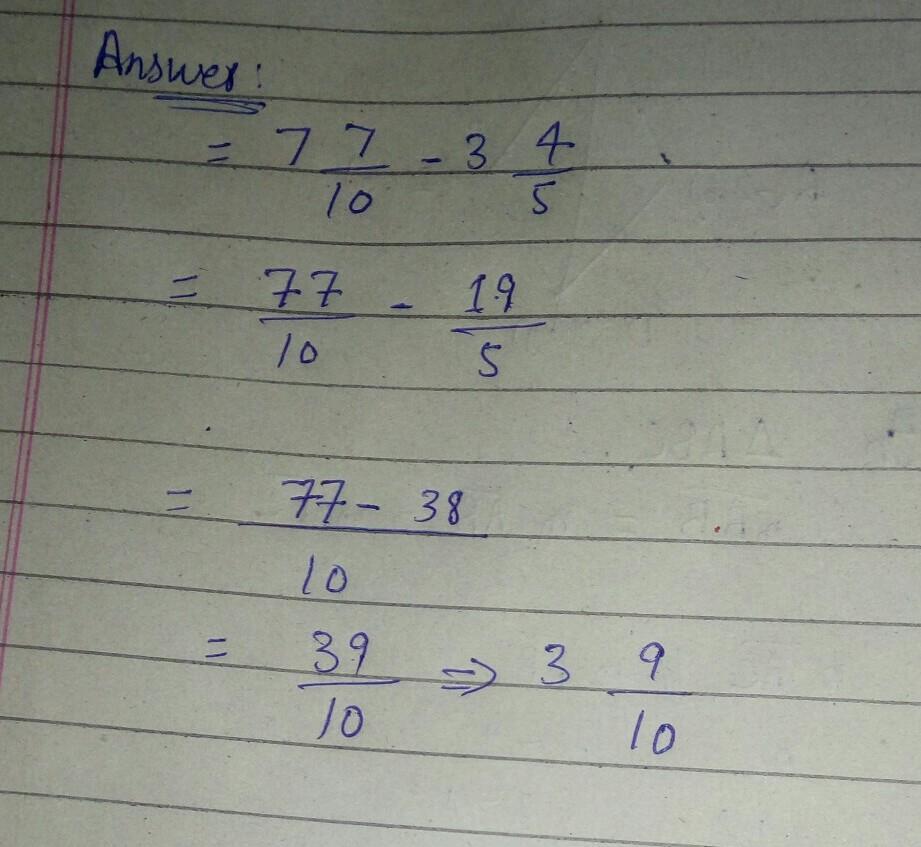 Answer:
= 7 7/10 - 3 4/5
= 77/10 - 19/5
= 77 - 38/10
= 39/10 ⇒ 3 9/10